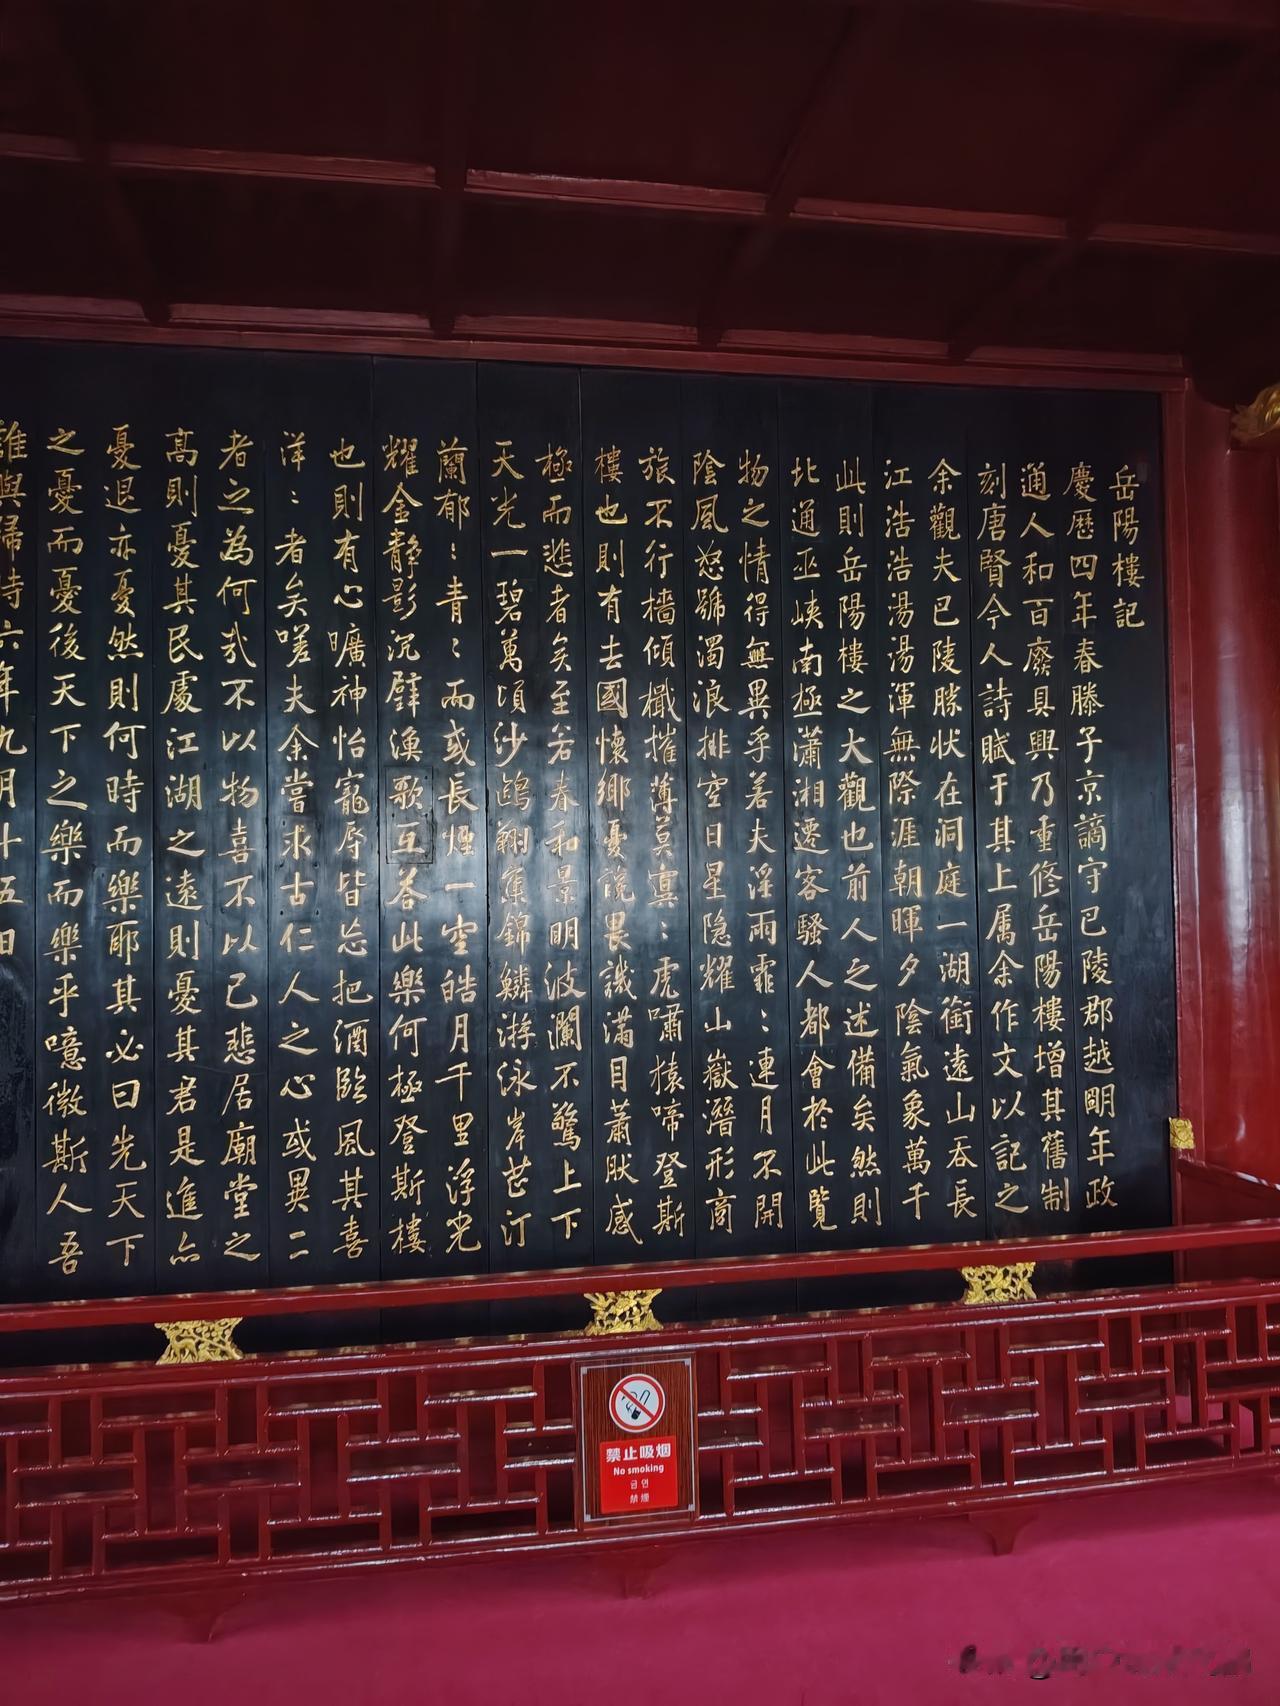 岳陽樓記
慶歷四年春滕子京謫守巴陵郡越明年政
通人和百廢具興乃重修岳陽樓增其舊制
刻唐賢今人詩賦于其上属余作文以記之
余觀夫巴陵勝狀在洞庭一湖銜遠山吞長
江浩浩湯湯渾無際涯朝暉夕陰氣象萬千
此則岳陽樓之大觀也前人之述備矣然則
北通巫峽南極瀟湘遷客騷人都會於此覽
物之情得無異乎若夫淫雨霏〻連月不開
陰風怒號濁浪排空日星隐耀山嶽潛形商
旅不行檣傾檝摧薄莫冥〻虎嘯猿啼登斯
樓也則有去國懷鄉憂讒畏譏滿目蕭肰感
極而悲者矣至若春和景明波瀾不驚上下
天光一碧萬頃沙鷗翔集錦鱗游泳岸芷汀
蘭郁〻青〻而或長煙一空皓月千里浮光
耀金靜影沉璧漁歌互荅此樂何極登斯樓
也則有心曠神怡寵辱皆忘把酒臨風其喜
洋〻者矣嗟夫余嘗求古仁人之心或異二
者之為何哉不以物喜不以己悲居廟堂之
高則憂其民處江湖之遠則憂其君是進亦
憂退亦憂然則何時而樂耶其必曰先天下
之憂而憂後天下之樂而樂乎噫微斯人吾
誰與歸時六年九月十五日
禁止吸烟
No smoking
금연
禁煙